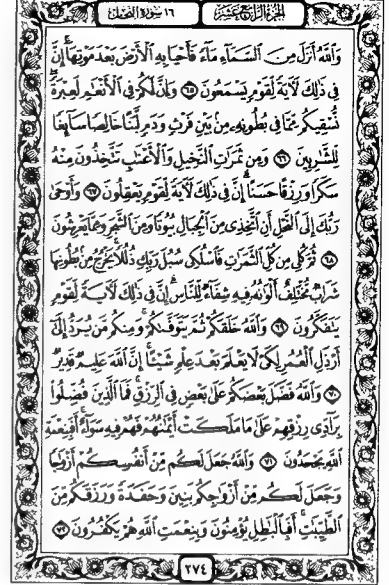 الجزء الرابع عشر ١٦ سورة النحل
وَٱللَّهُ أَنزَلَ مِنَ ٱلسَّمَآءِ مَآءً فَأَحْيَا بِهِ ٱلْأَرْضَ بَعْدَ مَوْتِهَآ ۚ إِنَّ
فِى ذَٰلِكَ لَـَٔايَةً لِّقَوْمٍ يَسْمَعُونَ ٦٥ وَإِنَّ لَكُمْ فِى ٱلْأَنْعَٰمِ لَعِبْرَةً ۖ
نُّسْقِيكُم مِّمَّا فِى بُطُونِهِۦ مِنۢ بَيْنِ فَرْثٍ وَدَمٍ لَّبَنًا خَالِصًا سَآئِغًا
لِّلشَّٰرِبِينَ ٦٦ وَمِن ثَمَرَٰتِ ٱلنَّخِيلِ وَٱلْأَعْنَٰبِ تَتَّخِذُونَ مِنْهُ
سَكَرًا وَرِزْقًا حَسَنًا ۗ إِنَّ فِى ذَٰلِكَ لَـَٔايَةً لِّقَوْمٍ يَعْقِلُونَ ٦٧ وَأَوْحَىٰ
رَبُّكَ إِلَى ٱلنَّحْلِ أَنِ ٱتَّخِذِى مِنَ ٱلْجِبَالِ بُيُوتًا وَمِنَ ٱلشَّجَرِ وَمِمَّا يَعْرِشُونَ
٦٨ ثُمَّ كُلِى مِن كُلِّ ٱلثَّمَرَٰتِ فَٱسْلُكِى سُبُلَ رَبِّكِ ذُلُلًا ۚ يَخْرُجُ مِنۢ بُطُونِهَا
شَرَابٌ مُّخْتَلِفٌ أَلْوَٰنُهُۥ فِيهِ شِفَآءٌ لِّلنَّاسِ ۗ إِنَّ فِى ذَٰلِكَ لَـَٔايَةً لِّقَوْمٍ
يَتَفَكَّرُونَ ٦٩ وَٱللَّهُ خَلَقَكُمْ ثُمَّ يَتَوَفَّىٰكُمْ ۚ وَمِنكُم مَّن يُرَدُّ إِلَىٰٓ
أَرْذَلِ ٱلْعُمُرِ لِكَىْ لَا يَعْلَمَ بَعْدَ عِلْمٍ شَيْـًٔا ۚ إِنَّ ٱللَّهَ عَلِيمٌ قَدِيرٌ
٧٠ وَٱللَّهُ فَضَّلَ بَعْضَكُمْ عَلَىٰ بَعْضٍ فِى ٱلرِّزْقِ ۚ فَمَا ٱلَّذِينَ فُضِّلُوا۟
بِرَآدِّى رِزْقِهِمْ عَلَىٰ مَا مَلَكَتْ أَيْمَٰنُهُمْ فَهُمْ فِيهِ سَوَآءٌ ۚ أَفَبِنِعْمَةِ
ٱللَّهِ يَجْحَدُونَ ٧١ وَٱللَّهُ جَعَلَ لَكُم مِّنْ أَنفُسِكُمْ أَزْوَٰجًا
وَجَعَلَ لَكُم مِّنْ أَزْوَٰجِكُم بَنِينَ وَحَفَدَةً وَرَزَقَكُم مِّنَ
ٱلطَّيِّبَٰتِ ۚ أَفَبِٱلْبَٰطِلِ يُؤْمِنُونَ وَبِنِعْمَتِ ٱللَّهِ هُمْ يَكْفُرُونَ ٧٢
٢٧٤